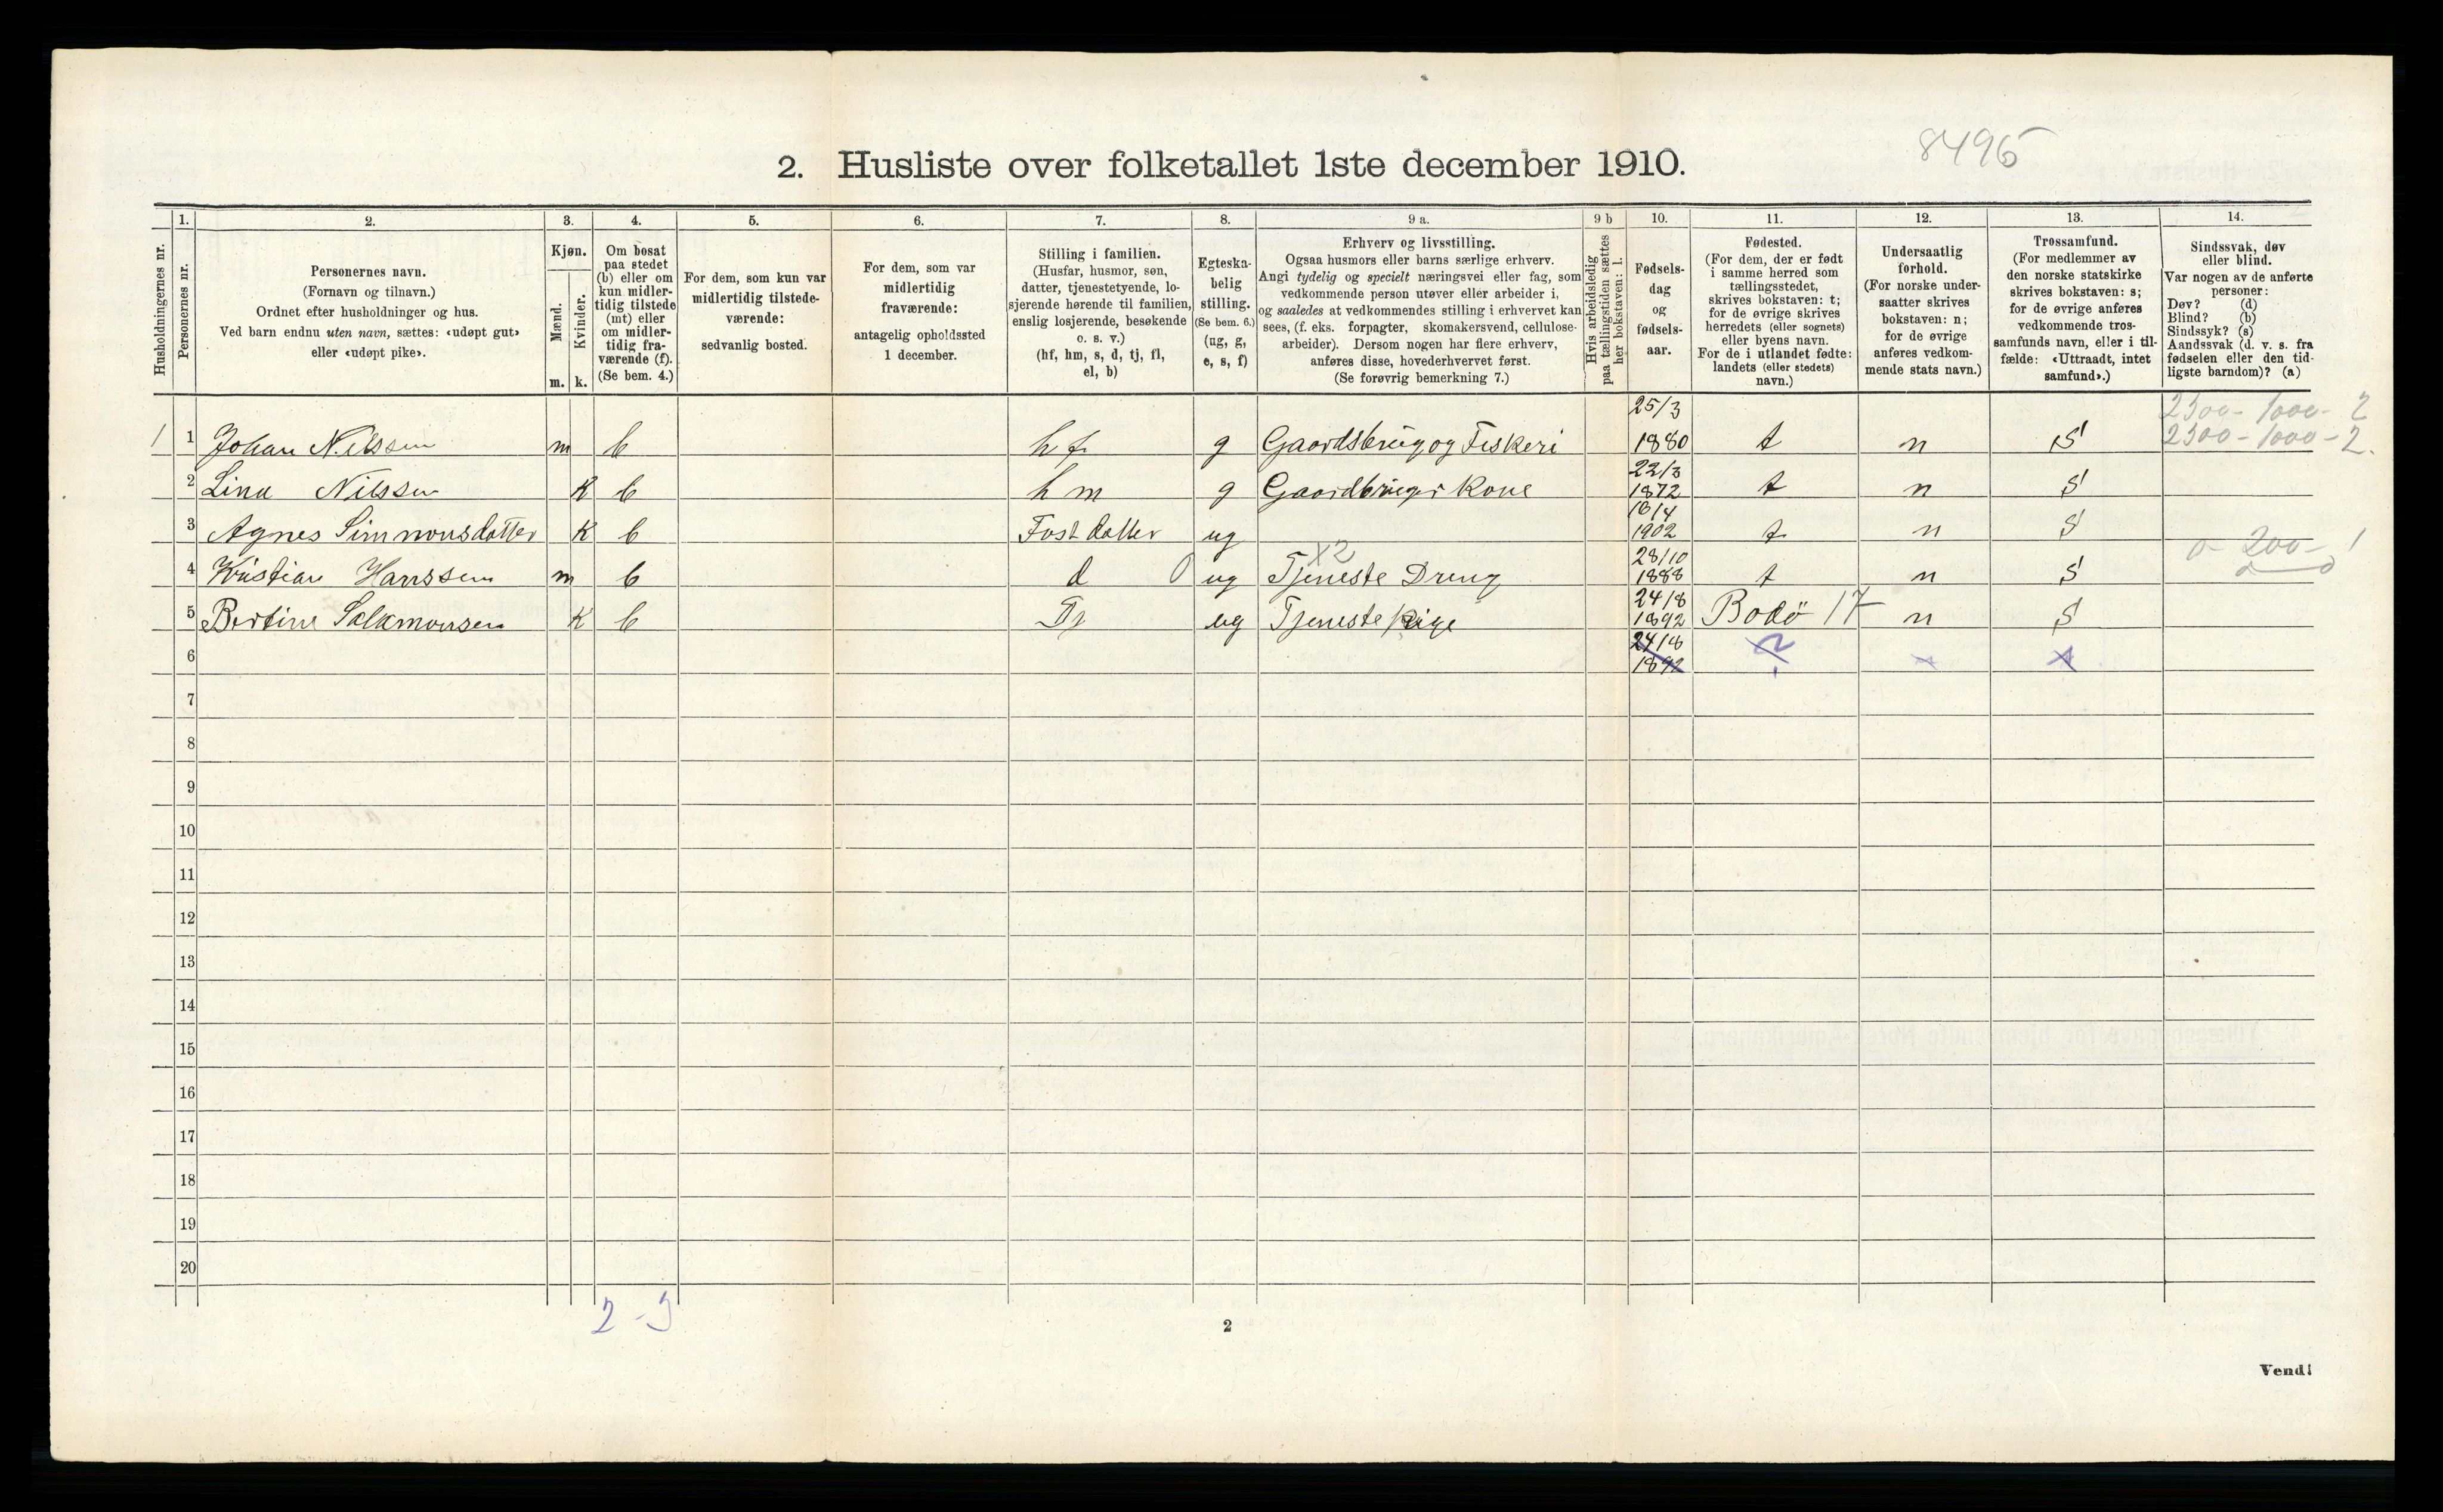 8495
2. Husliste over folketallet 1ste december 1910.
Husholdningernes nr.
1.
Personernes nr.
2.
Personernes navn.
(Fornavn og tilnavn.)
Ordnet efter husholdninger og hus.
Ved barn endnu uten navn, sættes: «udøpt gut»
eller «udøpt pike».
3.
Kjøn.
Mænd.
Kvinder.
m. k.
4.
Om bosat
paa stedet
(b) eller om
kun midler-
tidig tilstede
(mt) eller
om midler-
tidig fra-
værende (f).
(Se bem. 4.)
5.
For dem, som kun var
midlertidig tilstede-
værende:
sedvanlig bosted.
6.
For dem, som var
midlertidig
fraværende:
antagelig opholdssted
1 december.
7.
Stilling i familien.
(Husfar, husmor, søn,
datter, tjenestetyende, lo-
sjerende hørende til familien,
enslig losjerende, besøkende
o. s. v.)
(hf, hm, s, d, tj, fl,
el, b)
8.
Egteska-
belig
stilling.
(Se bem. 6.)
(ug, g,
e, s, f)
9 a.
Erhverv og livsstilling.
Ogsaa husmors eller barns særlige erhverv.
Angi tydelig og specielt næringsvei eller fag, som
vedkommende person utøver eller arbeider i,
og saaledes at vedkommendes stilling i erhvervet kan
sees, (f. eks. forpagter, skomakersvend, cellulose-
arbeider). Dersom nogen har flere erhverv,
anføres disse, hovederhvervet først.
(Se forøvrig bemerkning 7.)
9 b
Hvis arbeidsledig
paa tællingstiden sættes
her bokstaven: l.
10.
Fødsels-
dag
og
fødsels-
aar.
11.
Fødested.
(For dem, der er født
i samme herred som
tællingsstedet,
skrives bokstaven: t;
for de øvrige skrives
herredets (eller sognets)
eller byens navn.
For de i utlandet fødte:
landets (eller stedets)
navn.)
12.
Undersaatlig
forhold.
(For norske under-
saatter skrives
bokstaven: n;
for de øvrige
anføres vedkom-
mende stats navn.)
13.
Trossamfund.
(For medlemmer av
den norske statskirke
skrives bokstaven: s;
for de øvrige anføres
vedkommende tros-
samfunds navn, eller i til-
fælde: «Uttraadt, intet
samfund».)
14.
Sindssvak, døv
eller blind.
Var nogen av de anførte
personer:
Døv? (d)
Blind? (b)
Sindssyk? (s)
Aandssvak (d. v. s. fra
fødselen eller den tid-
ligste barndom)? (a)
2300 - 1000 - 2
1 1 Johan Nilssen m b hf g Gaardsbrug og Fiskeri 25/3 1880 t n S 2300 - 1000 - 2.
2 Lina Nilssen K b hm g Gaardbrugers Kone 22/3 1872 t n S
3 Agnes Simmonsdatter K b Fost datter ug 16/4 1902 t n S
4 Kristian Hanssen m b d 0 ug Tjeneste Dreng X2 28/10 1888 t n S 0 - 200 - 1
5 Bertine Salamonsen K b Tj ug Tjeneste pige 24/8 1892 Bodö 17 n S
6 24/8 1892 ?
7
8
9
10
11
12
13
14
15
16
17
18
19
20
2 - 3
2
Vend!